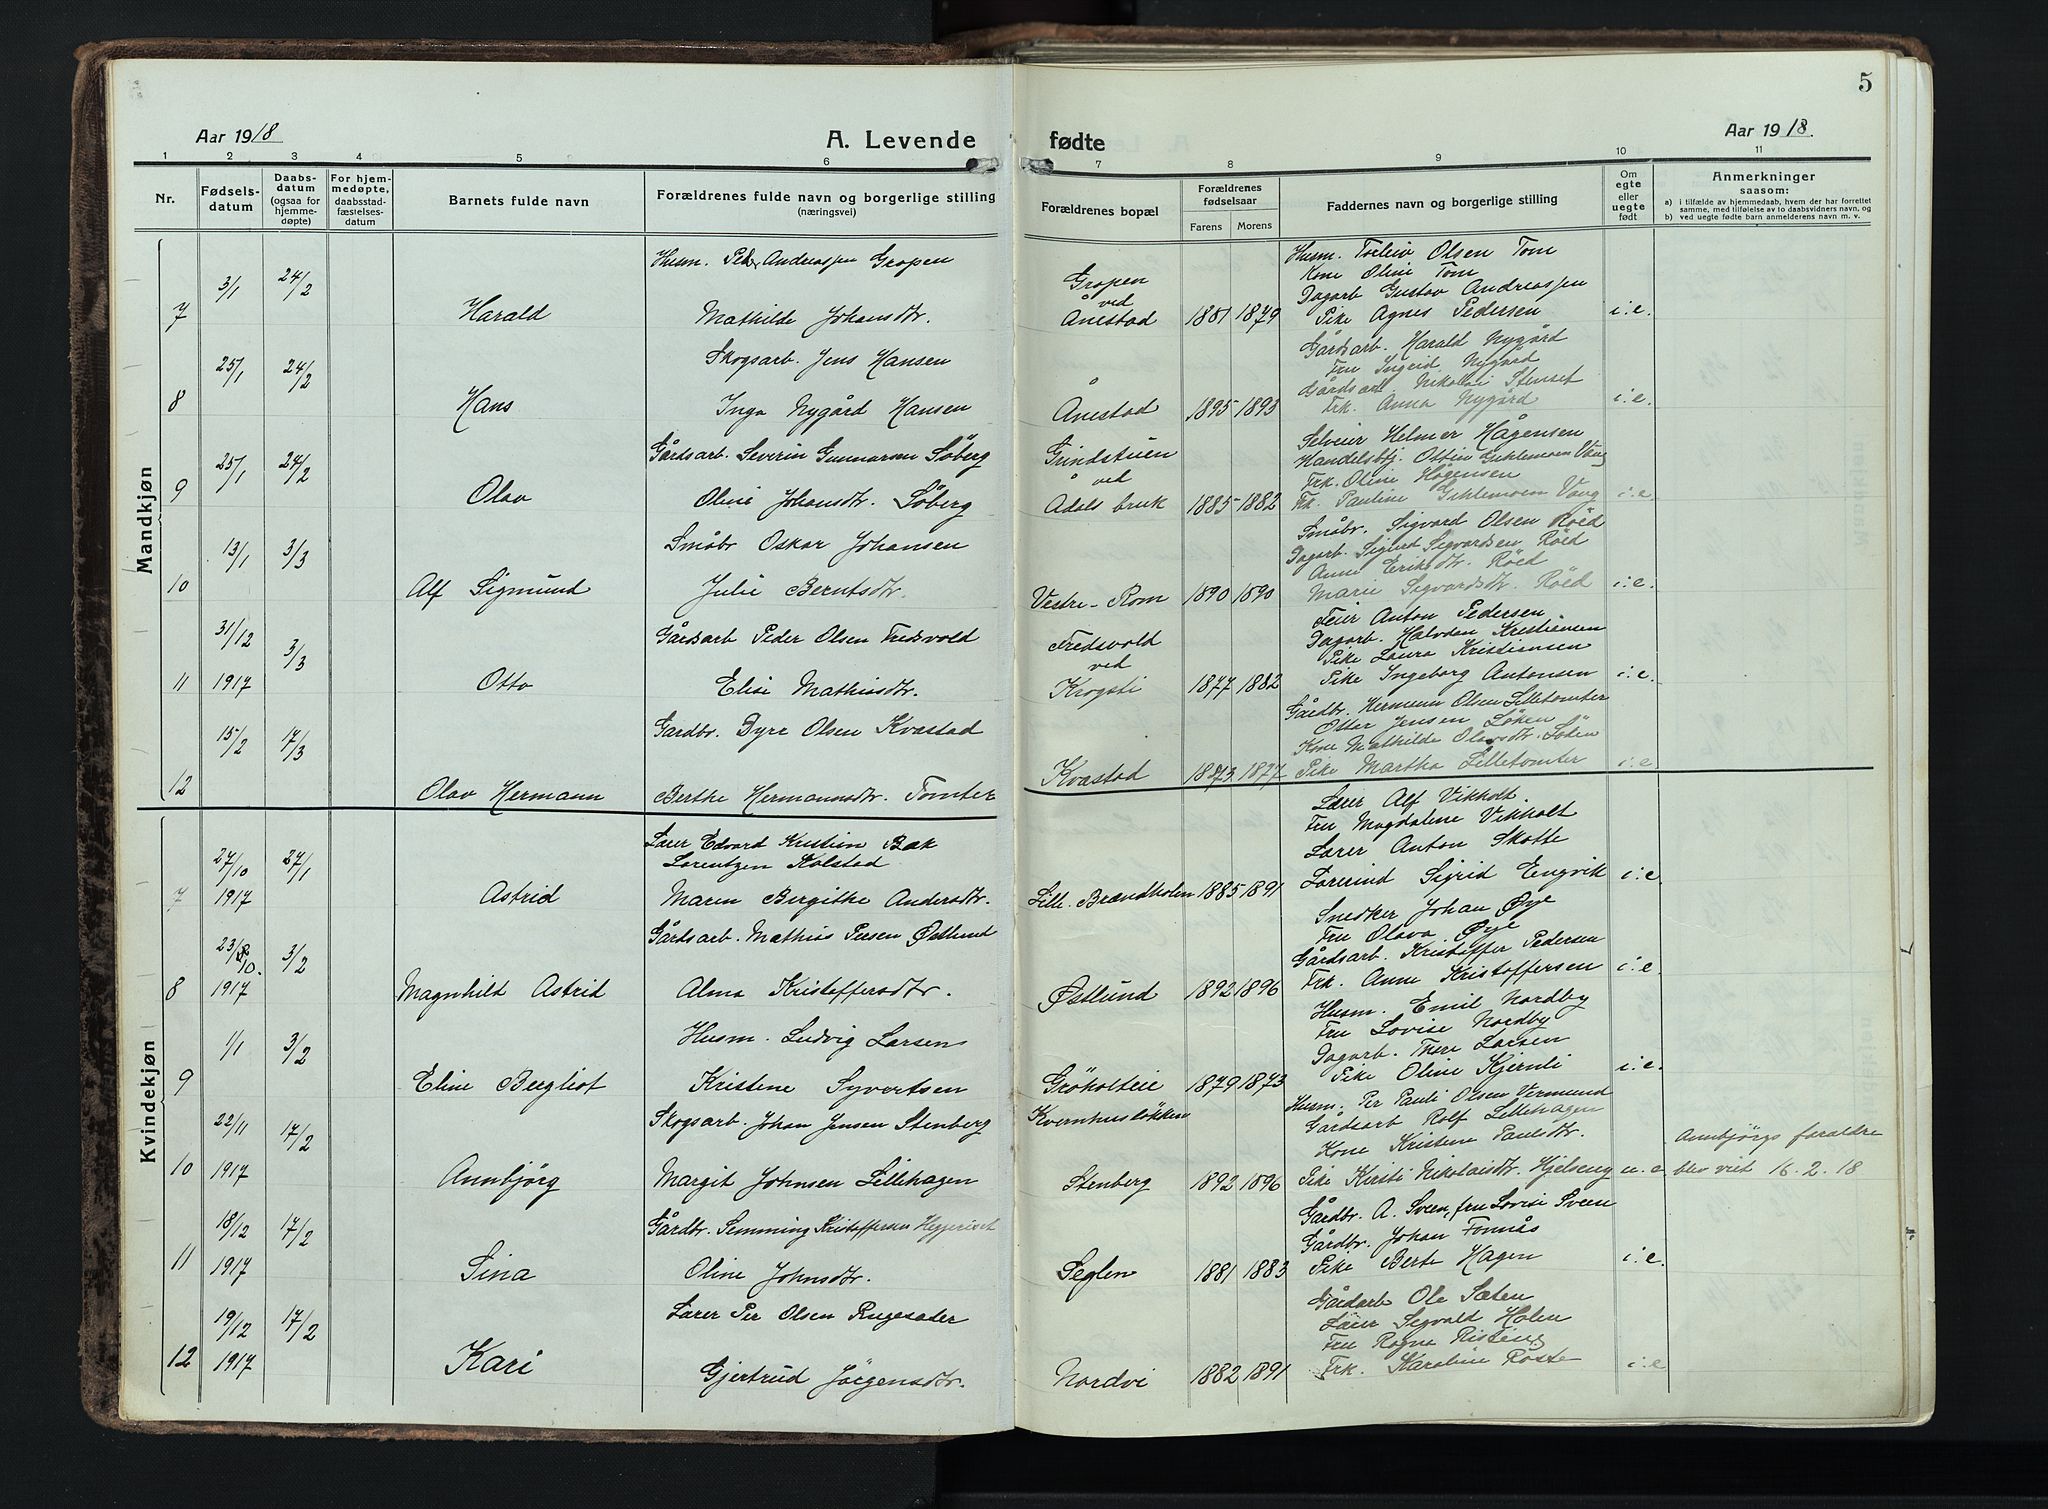 5
Aar 1918
A. Levende
fødte
Aar 1918.
1 2 3 4 5 6 7 8 9 10 11
Nr.
Fødsels-
datum
Daabs-
datum
(ogsaa for
hjemme-
døpte)
For hjem-
medøpte,
daabsstad-
fæstelses-
datum
Barnets fulde navn
Forældrenes fulde navn og borgerlige stilling
(næringsvei)
Forældrenes bopæl
Forældrenes
fødselsaar
Farens Morens
Faddernes navn og borgerlige stilling
Om
egte
eller
uegte
født
Anmerkninger
saasom:
a) i tilfælde av hjemmedaab, hvem der har forrettet
samme, med tilføielse av to daabsvidners navn, og
b) ved uegte fødte barn anmelderens navn m. v.
Mandkjøn
7 3/1 24/2 Harald
Husm. Peder Andreassen Gropen
Mathilde Johansdtr.
Gropen
ved
Ånestad 1881 1879
Husm. Torleiv Olsen Tom
Kone Oline Tom
Dagarb. Gustav Andreassen
Pike Agnes Pedersen i.e.
8 25/1 24/2 Hans
Skogsarb. Jens Hansen
Inga Nygård Hansen
Ånestad 1895 1893
Gårdsarb. Harald Nygård
Fru Ingrid Nygård
Gårdsarb. Nikolai Stenset
Frk. Anna Nygård i.e.
9 25/1 24/2 Olav
Gårdsarb. Severin Gunnarsen Söberg
Oline Johansdtr. Söberg
Grindstuen
ved
Ådals bruk 1885 1882
Selveier Helmer Hågensen
Handelsbtj. Ottin Gihlemoen Vang
Frk. Oline Hågensen
Frk. Pauline Gihlemoen Vang i.e.
10 13/1 3/3 Alf Sigmund
Småbr Oskar Johansen
Julie Berntsdtr.
Vestre-Rom 1890 1890
Småbr. Sigvard Olsen Röed
Dagarb. Sigurd Sigvardsen Röed
Anne Eriksdtr. Röed
Marie Sigvardsdtr. Röed i.e.
11 31/12 1917 3/3 Otto
Gårdsarb Peder Olsen Fredsvold
Elise Mathiasdtr.
Fredsvold
ved
Krogsti 1877 1882
Feier Anton Pedersen.
Dagarb. Halvdan Kristiansen
Pike Laura Kristiansen
Pike Ingeborg Antonsen i.e.
12 15/2 17/3 Olav Hermann
Gardbr. Byre Olsen Kvastad
Berthe Hermannsdtr. Tomter
Kvastad 1873 1877
Gårdbr. Hermann Olsen Lilletomter
Otter Jensen Löken
Kone Mathilde Olavsdtr. Löken
Pike Martha Lilletomter i.e.
Kvindekjøn
7 27/10 1917 27/1 Astrid
Lærer Edvard Kristian Bak
Lorentzen Kolstad
Maren Bergithe Andersdtr.
Lille. Brændholen 1885 1891
Lærer Alf Vikholt.
Fru Magdalene Vikholt
Lærer Anton Skotte
Lærerind Sigrid Engvik i.e.
8 23/10. 1917 3/2 Magnhild Astrid
Gårdsarb. Mathias Persen Østlund
Alma Kristoffersdtr.
Østlund 1892 1896
Snedker Johan Øye
Fru Olava Øye
Gårdsarb. Kristoffer Pedersen
Frk. Anne Kristoffersen i.e.
9 1/1 3/2 Eline Bergliot
Husm. Ludvig Larsen
Kristene Syvertsen
Gröholteie 1879 1873
Husm. Emil Nordby
Fru Lovise Nordby
Dagarb. Thore Larsen
Pike Oline Kjernli i.e.
10 22/11 1917 17/2 Annbjörg
Skogsarb. Johan Jensen Stenberg
Margit Johnsen Lillehagen
Kvernhuslökken
Stenberg 1892 1896
Husm. Per Pauli Olsen Vermund
Gårdsarb Rolf Lillehagen
Kone Kristene Paulsdtr.
Pike Kirsti Nikolaisdtr. Hjelseng u.e.
Annbjörgs foraldre
blev viet 16.2.18
11 18/12 1917 17/2 Sina
Gårdbr. Semming Kristoffersen Heggeriset
Oline Johnsdtr.
Seglen 1881 1883
Gårdbr. A. Sveen, fru Lovise Sveen
Gårdbr. Johan Fornås
Pike Berte Hagen i.e.
12 19/12 1917 17/2 Kari
Lærer Per Olsen Rugesæter
Gjertrud Jörgensdtr.
Nordvi 1882 1891
Gårdarb Ole Sæten
Lærer Sigvald Holen
Fru Ragna Risting
Frk. Karoline Röste i.e